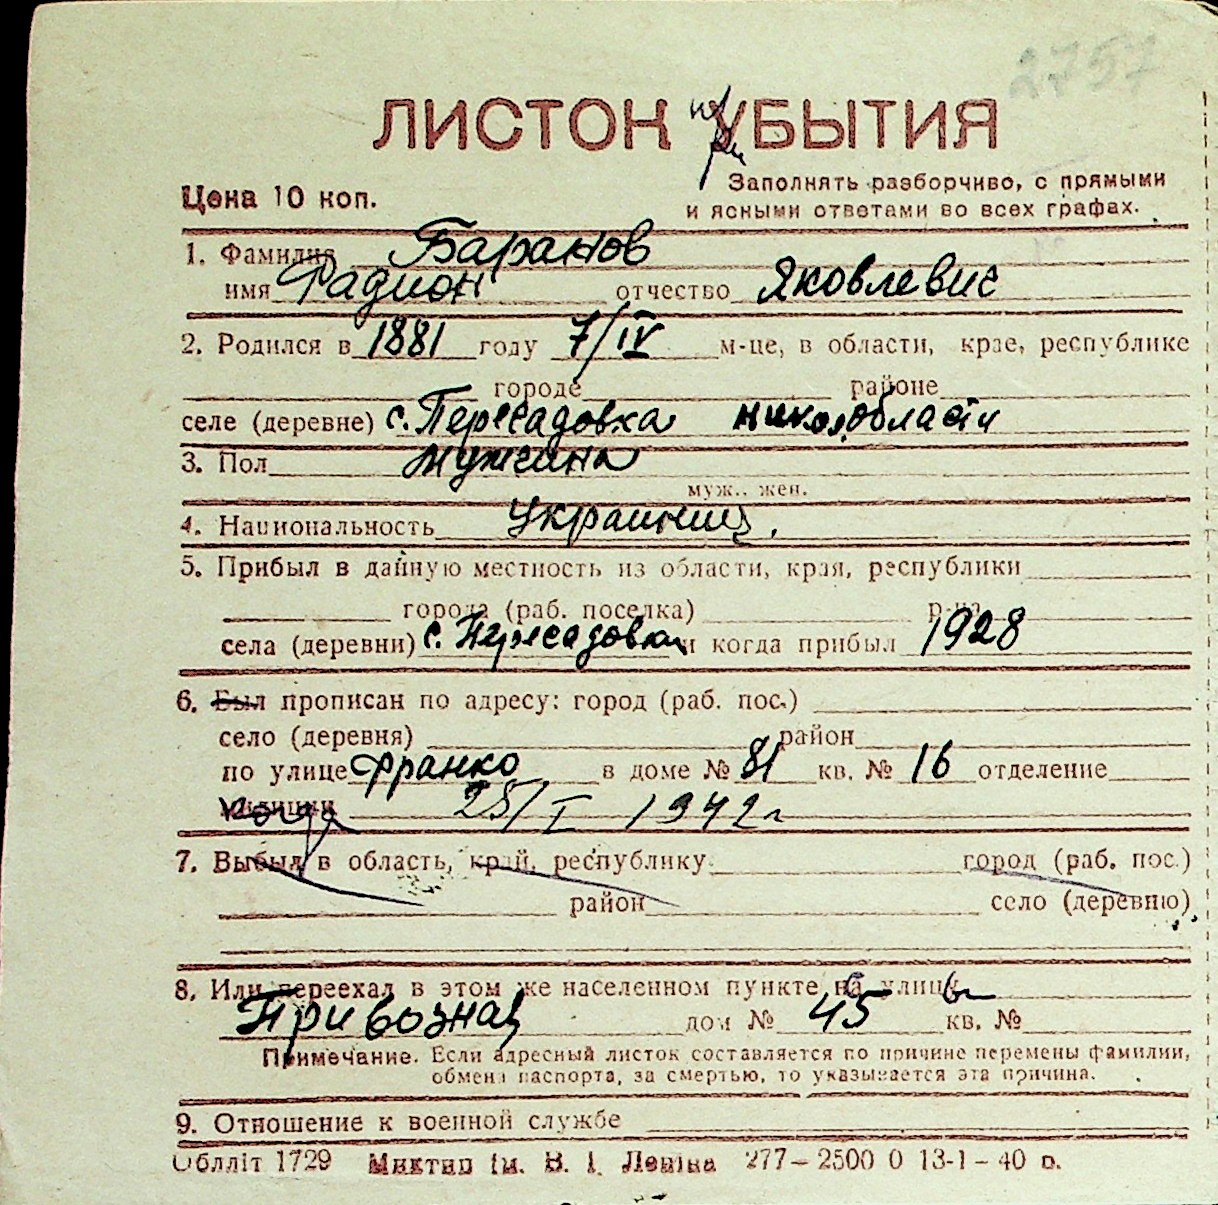 2757
ЛИСТОК при УБЫТИЯ
Цена 10 коп.
Заполнять разборчиво, с прямыми
и ясными ответами во всех графах.
1. Фамилия Баранов
имя Радион отчество Яковлевич
2. Родился в 1881 году 7/IV м-це, в области, крае, республике
городе районе
селе (деревне) с. Пересадовка никол. области
3. Пол мужчина
муж., жен.
4. Национальность Украинец,
5. Прибыл в данную местность из области, края, республики
города (раб. поселка) р-на
села (деревни) с. Пересадовка и когда прибыл 1928
6. Был прописан по адресу: город (раб. пос.)
село (деревня) район
по улице Франко в доме № 81 кв. № 16 отделение
милиции когда 25/I 1942 г
7. Выбыл в область, край, республику город (раб. пос.)
район село (деревню)
8. Или переехал в этом же населенном пункте на улицу
Привозная дом № 45 кв. №
Примечание. Если адресный листок составляется по причине перемены фамилии,
обмена паспорта, за смертью, то указывается эта причина.
9. Отношение к военной службе
Облліт 1729 Миктип ім. В. І. Леніна 277–2500 0 13-1–40 р.